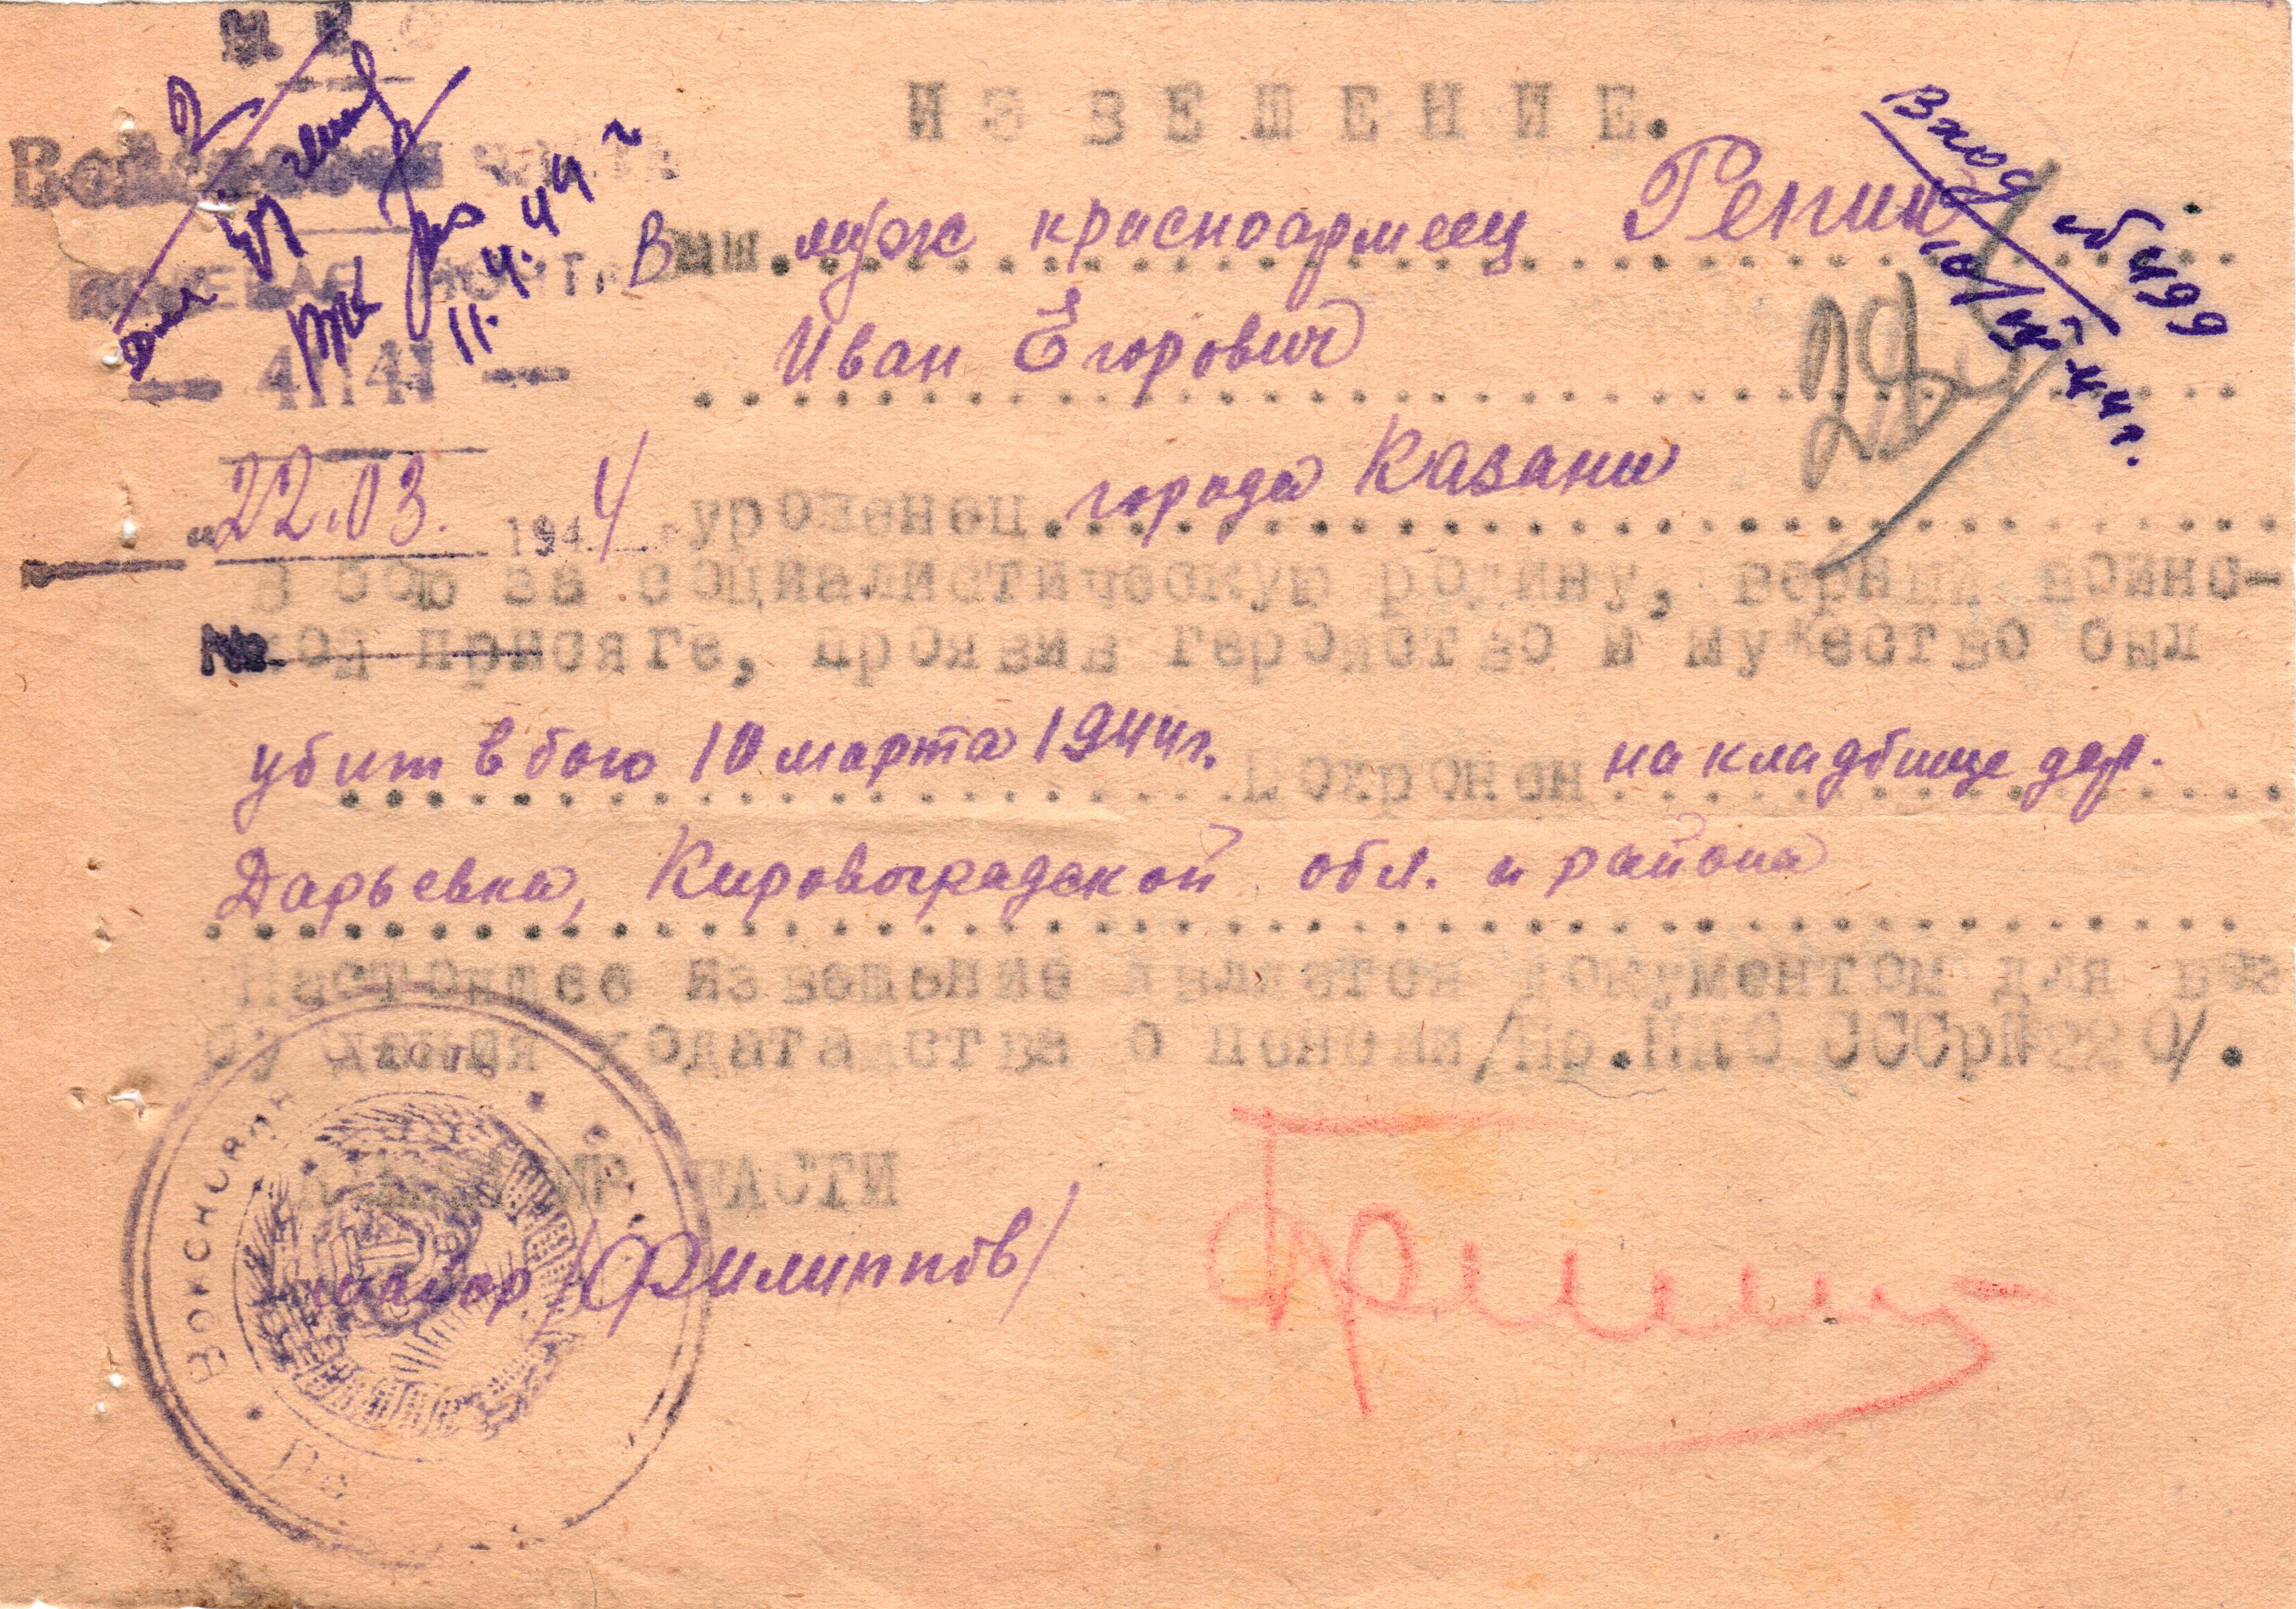 ИЗВЕЩЕНИЕ.
Войсковая часть
ПОЛЕВАЯ ПОЧТА
— 41141 —
11.4.44 г
Вход
№ 499
10/IV-44 г.
Ваш муж красноармеец Репин
Иван Егорович
28
"22.03. 1944 уроженец города Казани
В бою за социалистическую родину, верный воинс-
№ кой присяге, проявив геройство и мужество был
убит в бою 10 марта 1944 г. Похоронен на кладбище дер.
Дарьевка, Кировоградской обл. и района
Настоящее извещение является документом для воз
буждения ходатайства о пенсии/Пр.НКО СССР№220/.
ЧАСТИ
майор /Филиппов/
ВОИНСКАЯ ЧАСТЬ